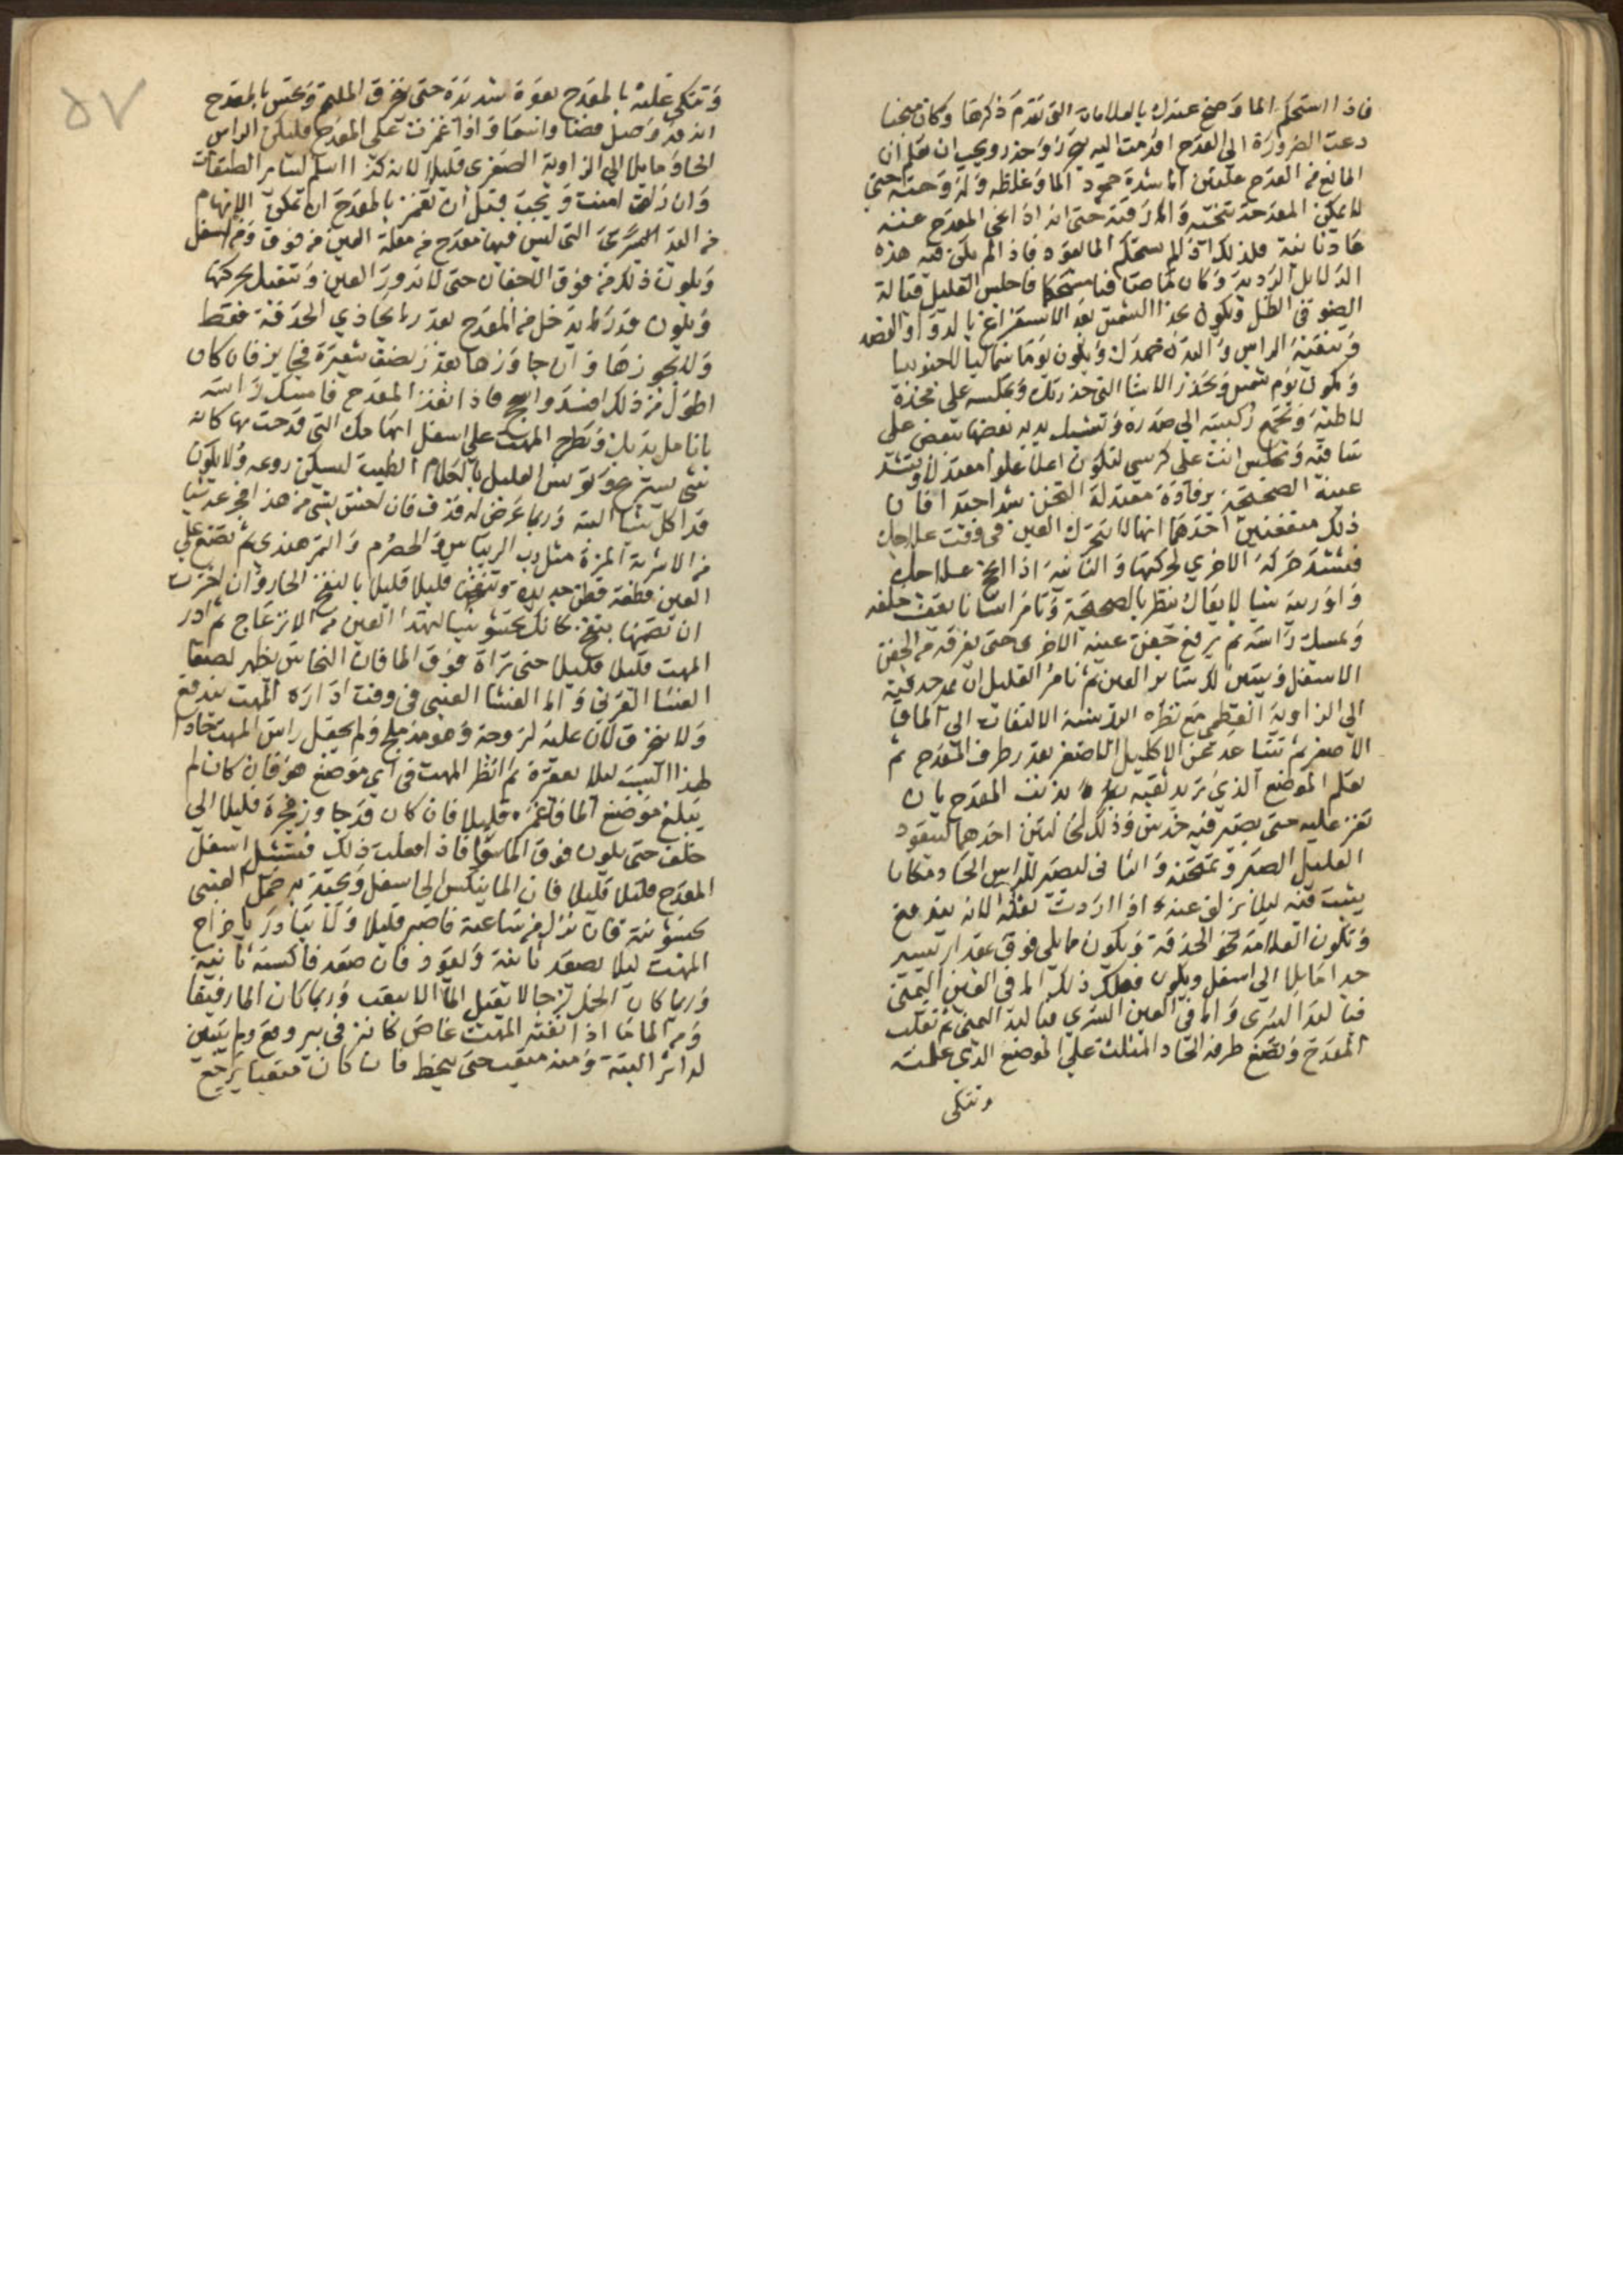 فاذا استحكم الما وصح عندك بالعلامات التى تقدم ذكرها وكان صحيحا
دعت الضرورة الى القدح اقدمت اليه بحرز وحذر ويجب ان تعلم ان
المانع من القدح علتين اما شدة جمود الما وغلظه ولزوجته حتى
لا يمكن المقدحة تنحيه واما رقته حتى انه اذا نحى المقدح عنه
عاد ثانية فلذلك اذا لم يستحكم الما يعود فاذا لم يكن فيه هذه
الدلايل الردية وكان خاصا فاجلس العليل قبالة
الضو فى الظل ويكون بحذا الشمس بعد الاستفراغ بالدوا والفصد
وتنقية الراس والبدن جهدك ويكون يوما شماليا لا جنوبيا
ولا يكون يوم شمس وتحذر الاشيا التى حذرتك وتجلسه على مخدة
لاطية وتجمع ركبتيه الى صدره وتشبك يديه بعضها ببعض على
ساقيه وتجلس انت على كرسى لتكون اعلا علوا معتدلا وتشد
عينه الصحيحة برفادة معتدلة الثخن شدا جيدا فان
ذلك منفعتين احدهما انها لا تتحرك العين فى وقت علاجك
فتشتد حركة الاخرى لحركتها والثانية اذا انجح علاجك
واوريته شيا لا يقال ينظر بالصحيحة وتامر انسانا يقف خلفه
ويمسك راسه ثم ترفع جفن عينه الاخرى حتى تفرقه من الجفن
الاسفل ويتبين لك ساير العين ثم تامر العليل ان يمد حدقته
الى الزاوية العظمى مع نظره اليك شبه الالتفات الى الماق
الاصغر ثم تتباعد عن الاكليل الاصغر بقدر طرف المقدح ثم
تعلم الموضع الذى تريد تثقبه بذنب المقدح بان
تغمز عليه حتى يصير فيه خرير وذلك لخلتين احدهما ليتعود
العليل الصبر وتمتحنه والثانى ليصير للراس الحاد مكانا
يثبت فيه ليلا يزلق عنه اذا اردت ثقبه لانه
وتكون العلامة نحو الحدقة ويكون مما يلى فوق بمقدار يسير
جدا مايلا الى اسفل ويكون فعلك ذلك اما فى العين اليمنى
فباليد اليسرى واما فى العين اليسرى فباليد اليمنى ثم تقلب
المقدح وتضع طرفه الحاد المثلث على الموضع الذى علمته
وتتكى
٥٧
وتتكى عليه بالمقدح بقوة شديدة حتى تخرق الملتحم وتحس بالمقدح
انه قد وصل فضا واسعا واذا غمزت على المقدح فليكن الراس
الحاد مايلا الى الزاوية الصغرى قليلا لانه كذا اسلم لساير الطبقات
وان زلق امنت ويجب قبل ان تغمز بالمقدح ان تمكن الابهام
من اليد اليسرى التى ليس فيها مقدح من مقلة العين من فوق ومن اسفل
ويكون ذلك من فوق الاجفان حتى لا تدور العين وتثقل حركتها
ويكون قدر ما يدخل من المقدح بقدر ما يحاذى الحدقة فقط
ولا يجوزها وان جاوزها بقدر نصف شعيرة فجايز فان كان
اطول من ذلك افسد واهج فاذا نفذ المقدح فامسك راسه
بانامل يديك وتطرح المهت على اسفل ابهامك التى قدحت بها كانه
شى يستريح وتونس العليل بالكلام الطيب ليسكن روعه ولا يكون
قد اكل شيا البته وربما عرض له قذف فان احس بشى من هذا فجرعه شيا
من الاشربة المزة مثل رب الريباس والحصرم والتمر هندى ثم تضع على
العين قطعة قطن جديدة وتنفخ قليلا قليلا بالنفخ الحار وان احترت
ان تضمها بتفخ كانك تحشو شيا لتهدا العين من الانزعاج ثم ادر
المهت قليلا قليلا حتى تراه فوق الما فان النحاس يظهر لصفا
الغشا القرنى واما الغشا العنبى فى وقت ادارة المهت يندفع
ولا ينخرق لان عليه لزوجة وهو مدملج ولم يجعل راس المهت حادا
لهذا السبب ليلا يعقره ثم انظر المهت فى اى موضع هو فان كان لم
يبلغ موضع الما فاغمزه قليلا فان كان قد جاوز فجره قليلا الى
خلف حتى يكون فوق الما سوا فاذا فعلت ذلك فتشيل اسفل
المقدح قليلا قليلا فان الما ينكبس الى اسفل ويجيه خمل العنبى
بخشونته فان نزل من ساعته فاصبر قليلا ولا تبادر باخراج
المهت ليلا يصعد ثانية ويعود فان صعد فاكبسه ثانية
وربما كان الخمل لزجا لا يقبل الما الا بتعب وربما كان الما رقيقا
ومن الما ما اذا ثقبه المهت غاص كانه فى بير وقع وما يتبين
له اثر البتة ومنه متعب حتى ينحط فان كان متعبا يرجع